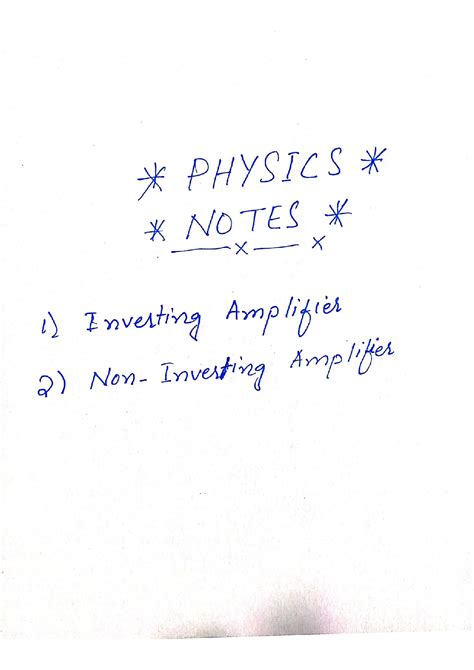 * PHYSICS *
* NOTES *
—x— x
1) Inverting Amplifier
2) Non-Inverting Amplifier